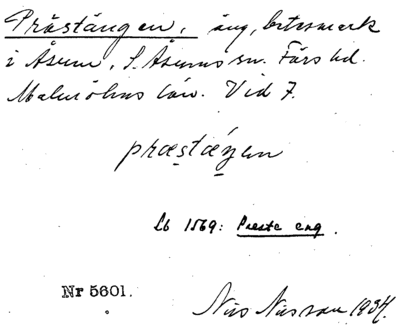 Prästängen, äng, betesmark
i Åsum, S. Åsums sn. Färs hd.
Malmöhus län. Vid 7.
præstæŋen
Lb 1569: Preste eng.
Nr 5601.
Nils Nilsson 1934.